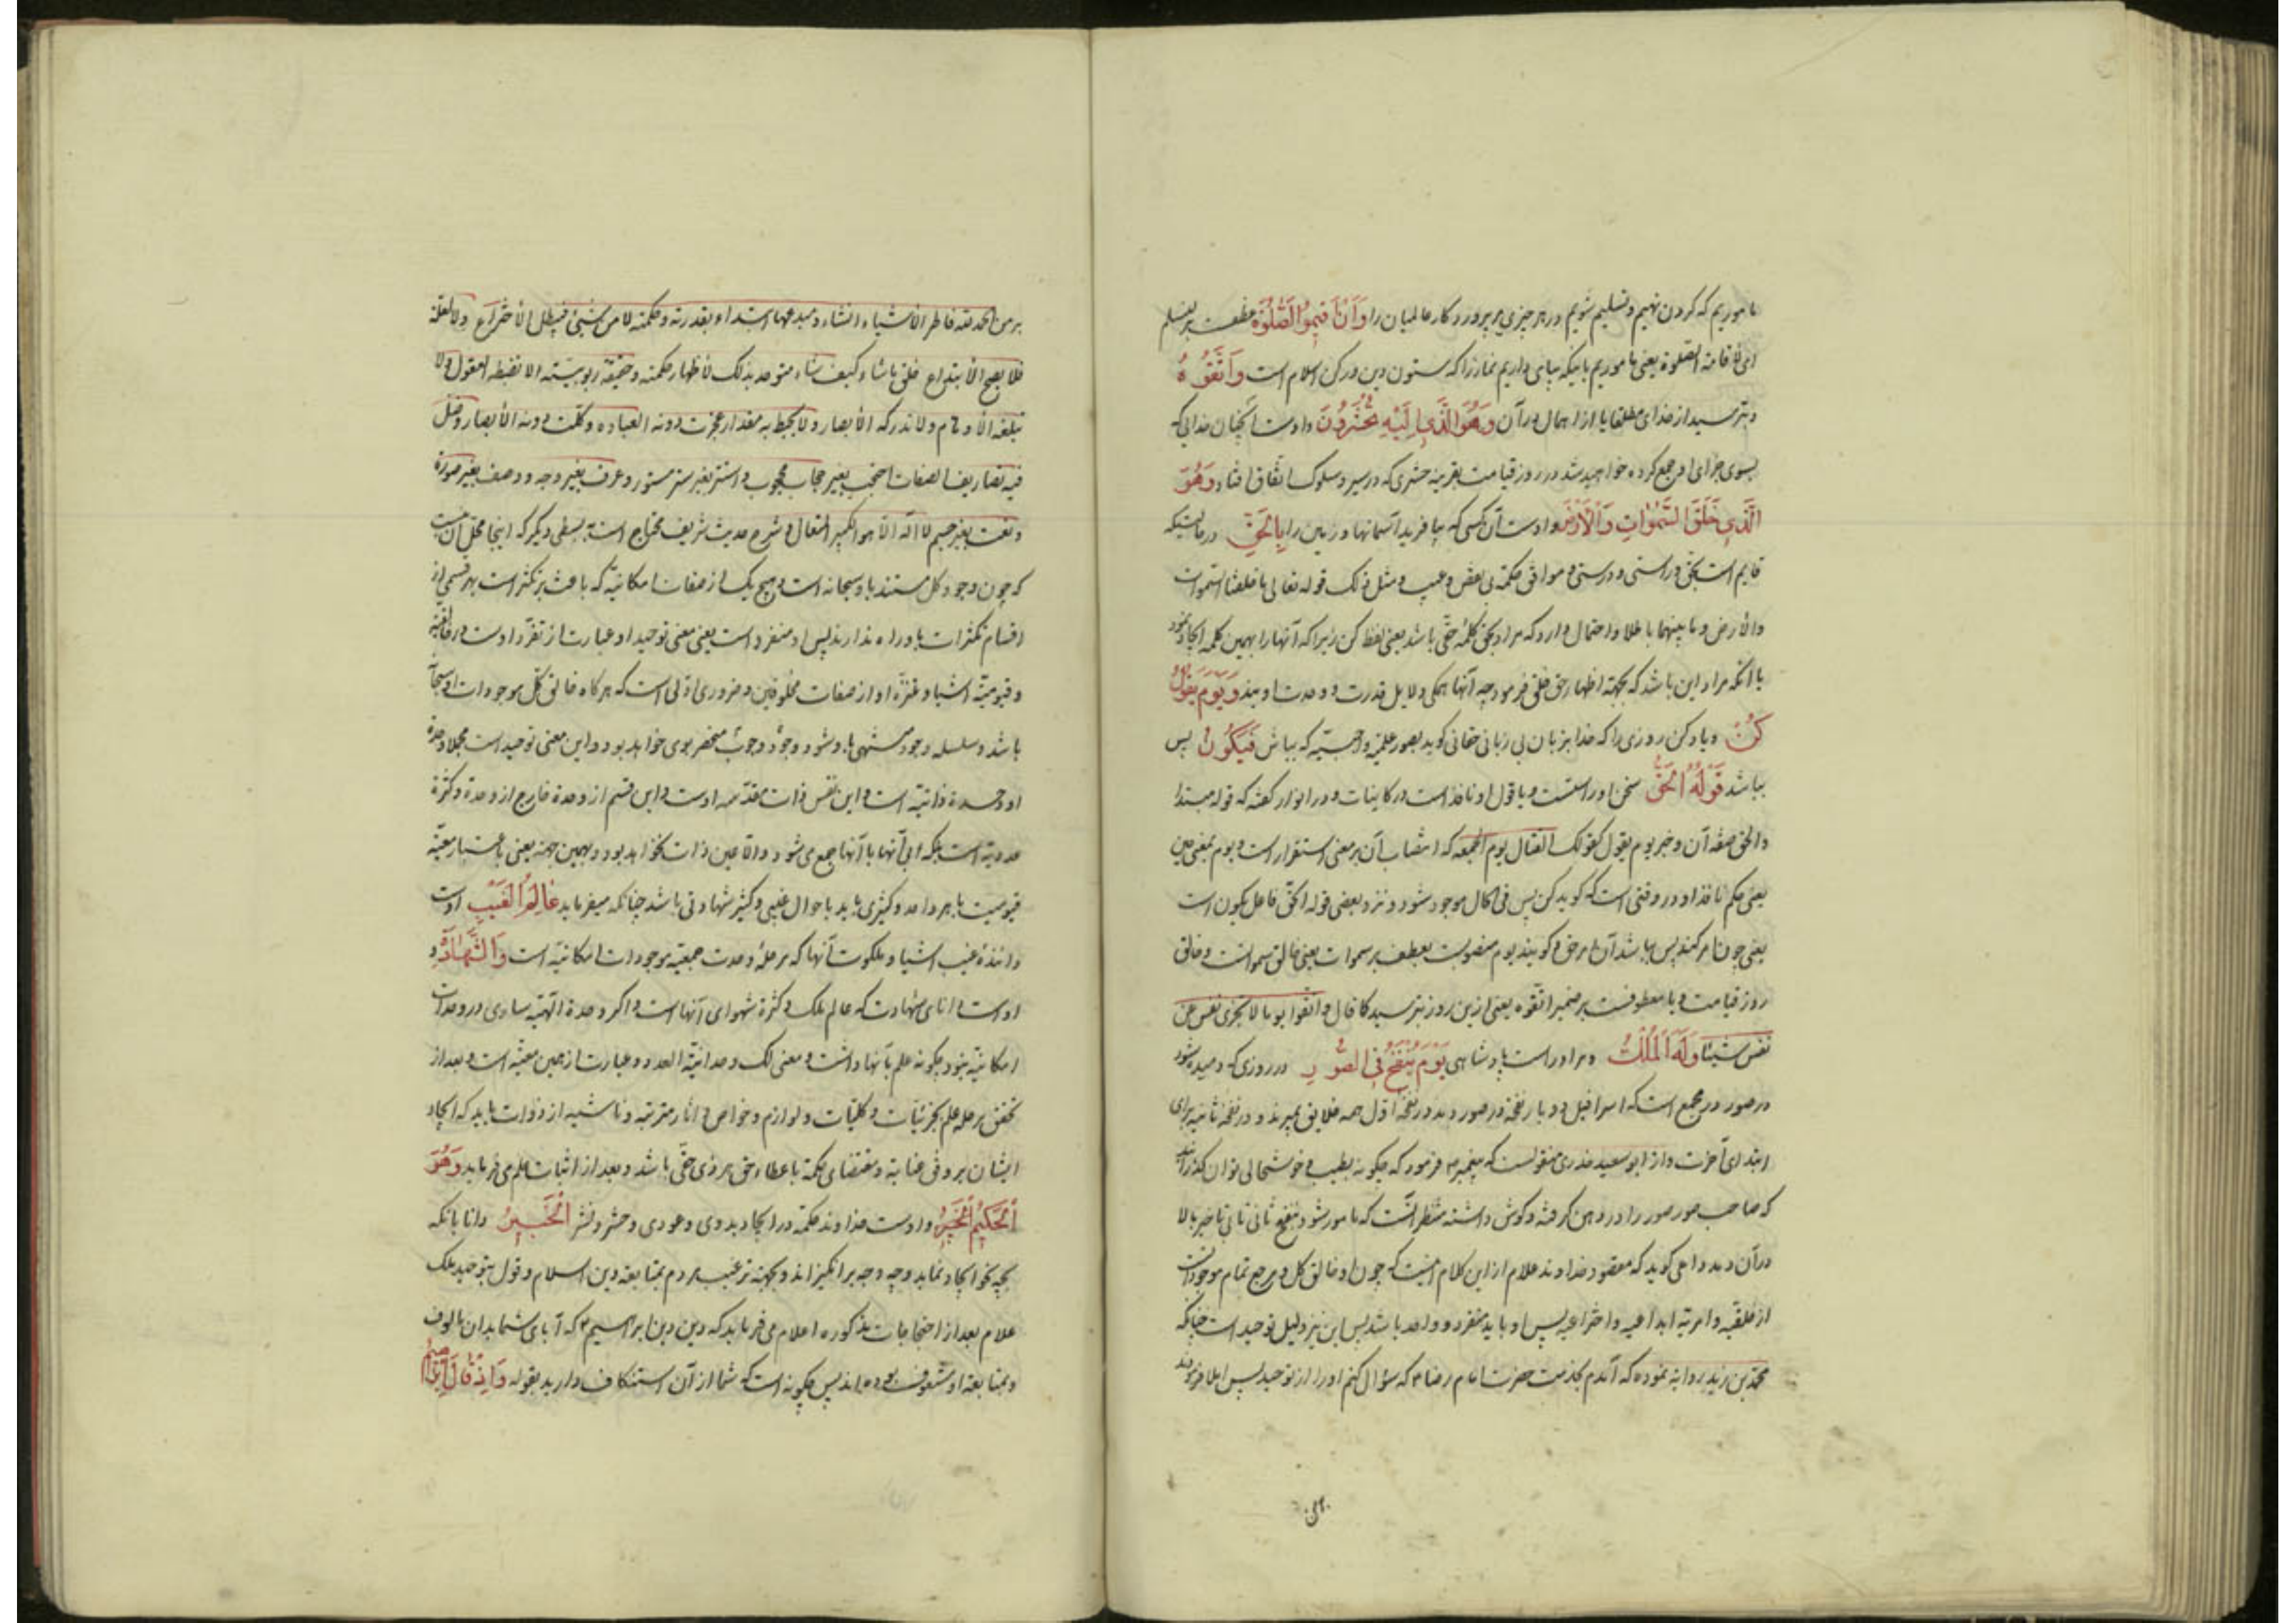 ماموریم که گردن نهیم و تسلیم شویم در هر چیزی بر پروردگار عالمیان را وَاَنْ اَقیمُوا الصَّلوةَ عطفست بر لنسلم
ای لاقامة الصلوة یعنی ماموریم باینکه بپای داریم نماز را که ستون دین و رکن اسلام است وَاتَّقُوهُ
و بترسید از خدای مطلقا یا از اهمال در آن وَهُوَ الَّذی اِلَیْهِ تُحْشَرُونَ و اوست آنچنان خدایی که
بسوی جزای او جمع کرده خواهید شد در روز قیامت بقرینه حشری که در سیر و سلوک اتفاق افتاد وَهُوَ
الَّذی خَلَقَ السَّمٰوٰاتِ وَالْاَرْضَ و اوست آن کسی که بیافرید آسمانها و زمین را بِالْحَقِّ در حالتیکه
قایم است بحق و راستی و درستی و موافق حکمة بی نقص و عیب و مثل ذلک قوله تعالی ما خلقنا السموات
والأرض وما بینهما باطلا و احتمال دارد که مراد بحق کلمۀ حق باشد یعنی لفظ کن زیرا که آنها را بهمین کلمه ایجاد نمود
یا آنکه مراد این باشد که بجهته اظهار حق خلق فرمود چه آنها همگی دلایل قدرت و وحدت اویند وَیَوْمَ یَقُولُ
کُنْ و یاد کن روزی را که خدا بزبان بی زبانی حقانی گوید بصور علمیه و احسبیه که بباش فَیَکُونُ پس
بباشد قَوْلُهُ الْحَقُّ سخن او راستست و یا قول او نافذ است در کاینات و در انوار گفته که قوله مبتدا
والحق صفة آن و خبر یوم یقول کقولک القتال یوم الجمعه که انتصاب آن بر معنی استقرار است و یوم بمعنی حین
یعنی حکم نافذ او در وقتی است که گوید کن پس فی الحال موجود شود و نزد بعضی قوله الحق فاعل یکون است
یعنی چون امر کند پس بباشد آن امر حق و گویند یوم منصوبست بعطف بر سموات یعنی خالق سمواتست و خالق
روز قیامت و یا معطوفست بر ضمیر اتقوه یعنی ازین روز بترسید کما قال واتقوا یوما لا تجزی نفس عن
نفس شیئا وَلَهُ الْمُلْکُ و مر او راست پادشاهی یَوْمَ یُنْفَخُ فِی الصُّورِ در روزی که دمیده شود
در صور در مجمع است که اسرافیل دو بار نفخه در صور دمد در نفخۀ اول همه خلایق بمیرند و در نفخۀ ثانیه برای
ابتدای آخرت و از ابوسعید خدری منقولست که پیغمبر ص فرمود که چگونه بطیب و خوشحالی توان گذراند
که صاحب صور صور را در دهن گرفته و گوش داشته منتظر آنست که مامور شود بنفخ ثانی
در آن دمد داعی گوید که مقصود خداوند علام از این کلام اینست که چون او خالق کل و مرجع تمام موجوداتست
از خلقیه و امریه ابداعیه و اختراعیه پس او باید منفرد و واحد باشد پس این نیز دلیل توحید است چنانکه
محمد بن زید روایة نموده که آمدم بخدمت حضرت امام رضا ع که سؤال کنم او را از توحید پس املا فرمودند
بر من الحمد لله فاطر الأشیاء انشاء و مبدعها ابتداء بقدرته و حکمته لا من شیئ فیبطل الأختراع ولا لعلة
فلا یصح الأبتداع خلق ما شاء کیف شاء متوحد بذلک لأظهار حکمته و حقیقة ربوبیته لا تضبطه العقول ولا
تبلغه الأوهام ولا تدرکه الأبصار ولا یحیط به مقدار عجزت دونه العباره وکلت دونه الأبصار وضل
فیه تصاریف الصفات احتجب بغیر حجاب محجوب و استتر بغیر ستر مستور وعرف بغیر وجه ووصف بغیر صورة
ونعت بغیر جسم لا اله الا هو الکبیر المتعال و شرح حدیث شریف محتاج است به بسطی دیگر که اینجا محل آن نیست
که چون وجود کل مستند باو سبحانه است و هیچ یک از صفات امکانیه که باعث بر تکثر است بهر قسمی از
اقسام تکثرات باو راه ندارند پس او منفرد است یعنی معنی توحید او عبارت از تفرد اوست در خالقیة
و قیومیة اشیا و تنزه او از صفات مخلوقین و ضروری اولی است که هر گاه خالق کل موجودات او سبحانه
باشد و سلسله وجود منتهی باو شود وجود و وجوب منحصر بوی خواهد بود و این معنی توحید است مجملا وحدة
او وحدة ذاتیه است و این نفس ذات مقدسه اوست و این قسم از وحدة خارج از وحدة و کثرة
عددیة است بلکه ابی آنها با آنها جمع می شود و الا عین ذات نخواهد بود و بهمین جهته یعنی باعتبار معیة
قیومیت با هر واحد و کثیری باید باحوال غیبی و کثیر شهادتی باشد چنانکه میفرماید عٰالِمُ الْغَیْبِ اوست
دانندۀ غیب اشیا و ملکوت آنها که مرحلۀ وحدت جمعیه موجودات امکانیه است وَالشَّهٰادَةِ و
اوست دانای شهادت که عالم ملک و کثرة شهوای آنها است و اگر وحدة الهیة ساری در وحدات
امکانیة نبود چگونه علم بآنها داشت و معنی لک وحدانیة العدد عبارت از همین معیة است و بعد از
تحقق مرحله علم بجزئیات و کلیات و لوازم و خواص و اثار مترتبه و ناشئه از ذوات باید که ایجاد
ایشان بر وفق عنایة و مقتضای حکمة با عطاء حق هر ذی حقی باشد و بعد از اثبات علم می فرماید وَهُوَ
اَلْحَکیمُ الْخَبیرُ و اوست خداوند حکمة در ایجاد بدوی و عودی و حشر و نشر اَلْخَبیرُ دانا بانکه
بچه نحو ایجاد نماید و چه وجه برانگیزاند و بجهته ترغیب مردم بمتابعة دین اسلام و قول بتوحید ملک
علام بعد از احتجاجات مذکوره اعلام می فرماید که دین دین ابراهیم ع که آبای شما بدان مالوف
و بمتابعة او مشعوف بوده اند پس چگونه است که شما از آن استنکاف دارید بقوله وَاِذْ قٰالَ اِبْرٰاهیمُ